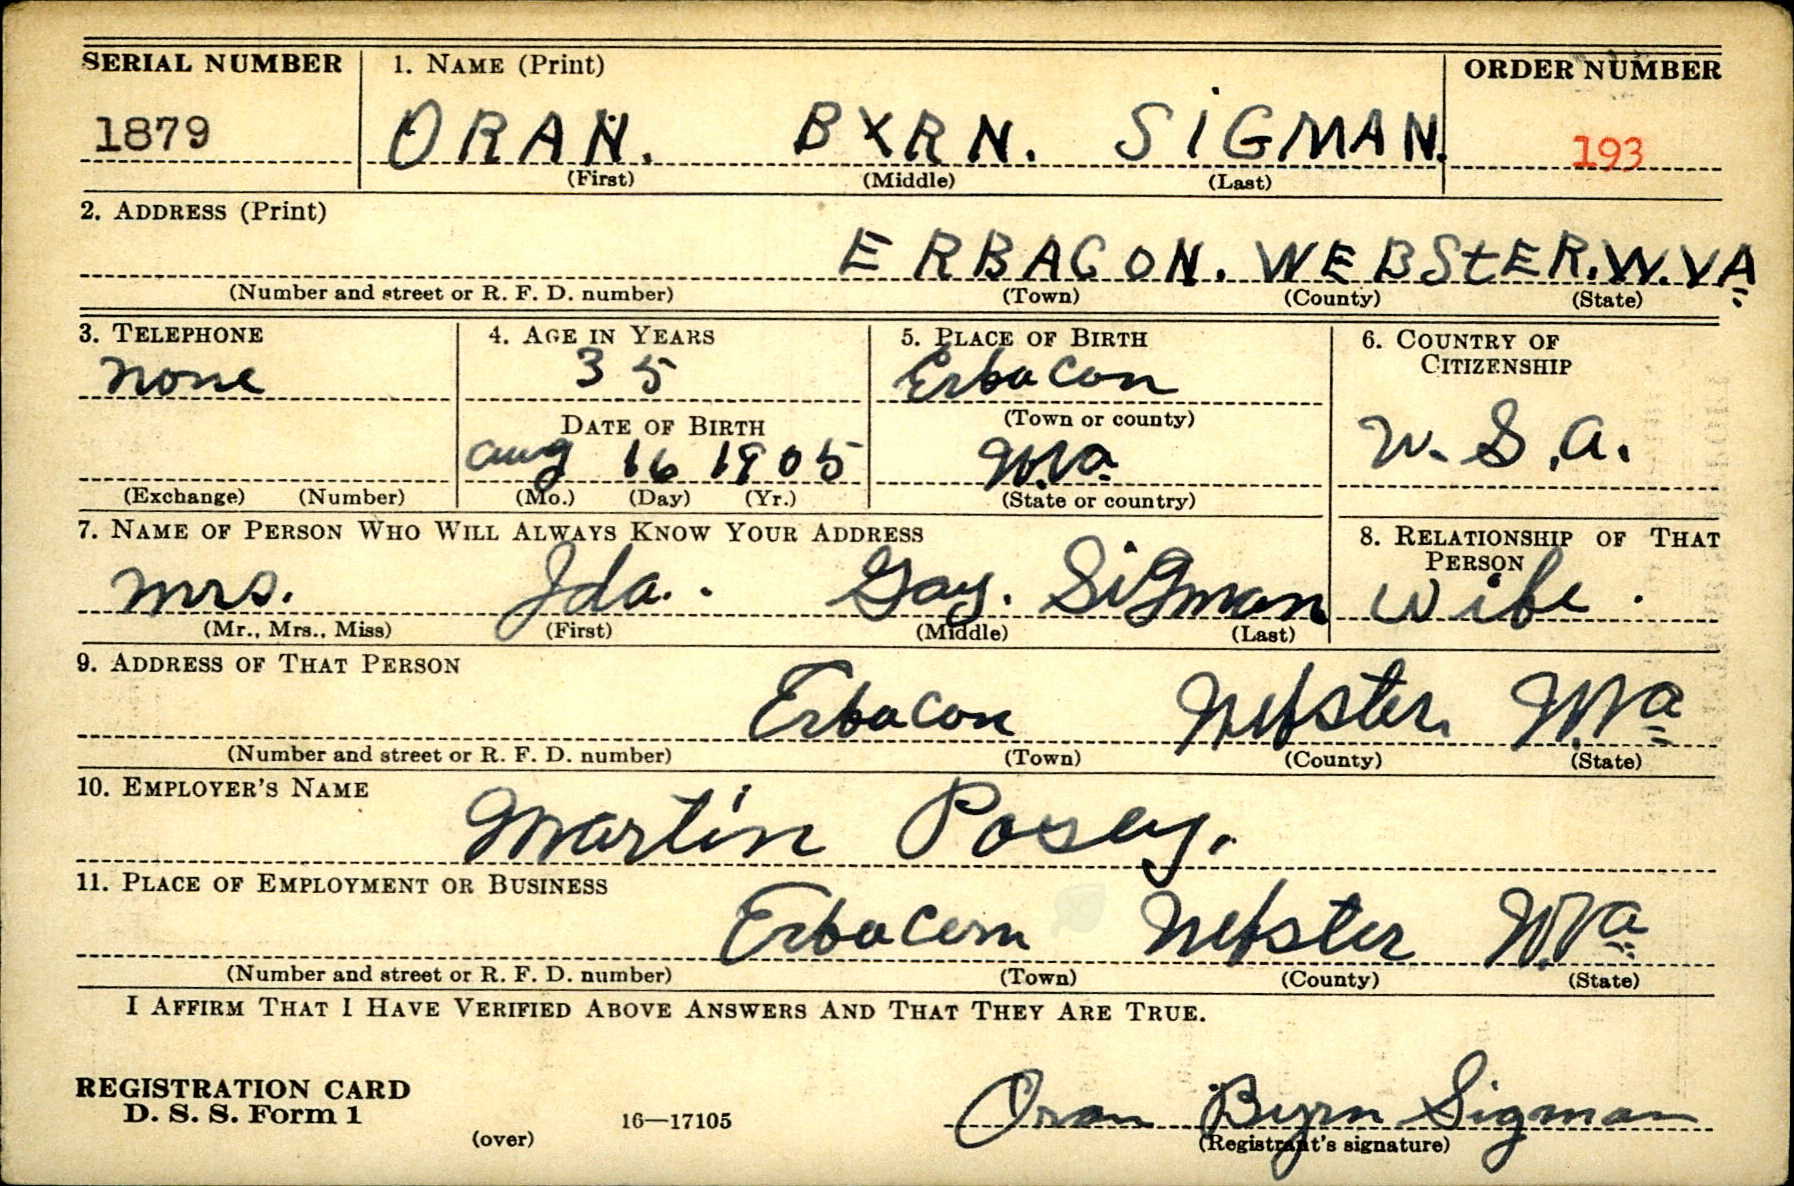 SERIAL NUMBER 1. NAME (Print) ORDER NUMBER
1879 ORAN. BYRN. SiGMAN. 193
(First) (Middle) (Last)
2. ADDRESS (Print)
ERBACON. WEBStER. W.VA
(Number and street or R. F. D. number) (Town) (County) (State)
3. TELEPHONE 4. AGE IN YEARS 5. PLACE OF BIRTH 6. COUNTRY OF CITIZENSHIP
none 35 Erbacon
DATE OF BIRTH (Town or county) U.S.A.
Aug 16 1905 W.Va
(Exchange) (Number) (Mo.) (Day) (Yr.) (State or country)
7. NAME OF PERSON WHO WILL ALWAYS KNOW YOUR ADDRESS 8. RELATIONSHIP OF THAT PERSON
Mrs. Ida. Gay. Sigman Wife.
(Mr., Mrs., Miss) (First) (Middle) (Last)
9. ADDRESS OF THAT PERSON
Erbacon Webster. W.Va
(Number and street or R. F. D. number) (Town) (County) (State)
10. EMPLOYER'S NAME
Martin Posey.
11. PLACE OF EMPLOYMENT OR BUSINESS
Erbacon Webster W.Va
(Number and street or R. F. D. number) (Town) (County) (State)
I AFFIRM THAT I HAVE VERIFIED ABOVE ANSWERS AND THAT THEY ARE TRUE.
REGISTRATION CARD
D. S. S. Form 1 16—17105 Oran Byrn Sigman
(over) (Registrant's signature)